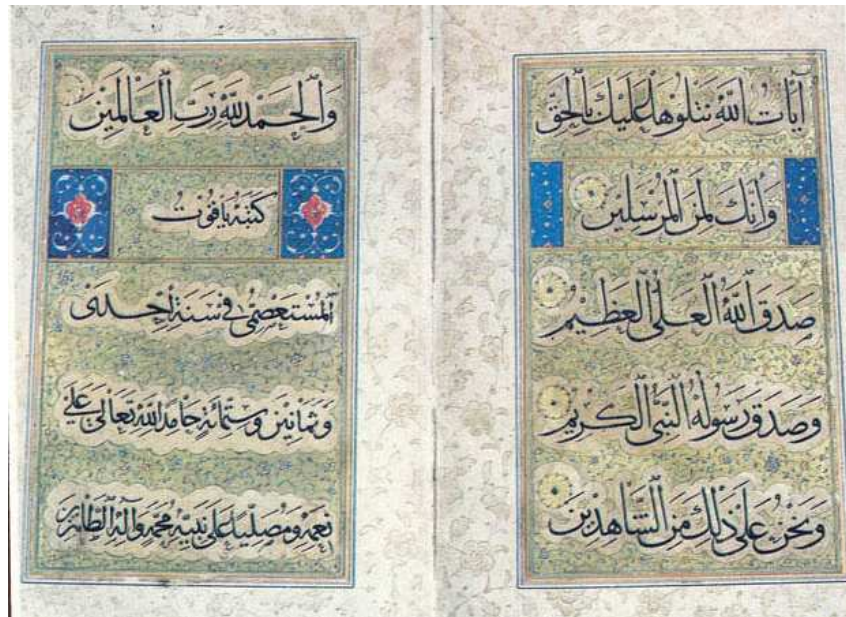 آيَاتُ اللّٰهِ نَتْلُوهَا عَلَيْكَ بِالْحَقِّ
وَإِنَّكَ لَمِنَ الْمُرْسَلِينَ
صَدَقَ اللّٰهُ الْعَلِيُّ الْعَظِيمُ
وَصَدَقَ رَسُولُهُ النَّبِيُّ الْكَرِيمُ
وَنَحْنُ عَلَى ذٰلِكَ مِنَ الشَّاهِدِينَ
وَالْحَمْدُ لِلّٰهِ رَبِّ الْعَالَمِينَ
كَتَبَهُ يَاقُوتُ
الْمُسْتَعْصِمِيُّ فِي سَنَةِ إِحْدَى
وَثَمَانِينَ وَسِتِّمِائَةٍ حَامِدًا لِلّٰهِ تَعَالَى عَلَى
نِعَمِهِ وَمُصَلِّيًا عَلَى نَبِيِّهِ مُحَمَّدٍ وَآلِهِ الطَّاهِرِينَ